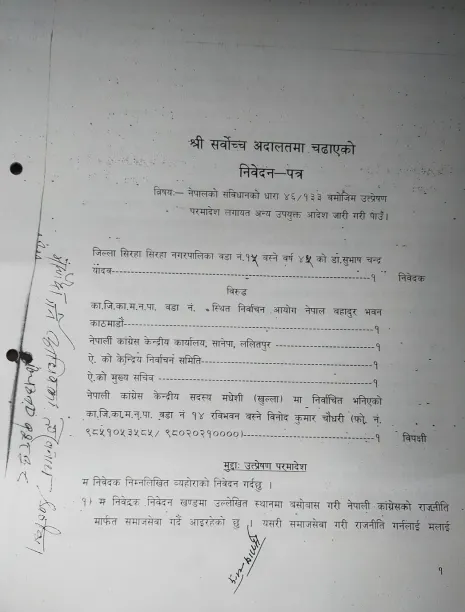 श्री सर्वोच्च अदालतमा चढाएको
निवेदन–पत्र
विषय:— नेपालको संविधानको धारा ४६/१३३ बमोजिम उत्प्रेषण
परमादेश लगायत अन्य उपयुक्त आदेश जारी गरी पाउँ।
जिल्ला सिरहा सिरहा नगरपालिका वडा नं.१५ बस्ने वर्ष ४५ को डा.सुभाष चन्द्र
यादव-----------------------------------------------------------१ निवेदक
विरुद्ध
का.जि.का.म.न.पा. वडा नं. स्थित निर्वाचन आयोग नेपाल बहादुर भवन
काठमाडौं-----------------------------------------------------------१
नेपाली कांग्रेस केन्द्रीय कार्यालय, सानेपा, ललितपुर ----------------------१
ऐ. को केन्द्रिय निर्वाचन समिति--------------------------------------१
ऐ.को मुख्य सचिव ------------------------------------------------१
नेपाली कांग्रेस केन्द्रीय सदस्य मधेशी (खुल्ला) मा निर्वाचित भनिएको
का.जि.का.म.न.पा. वडा नं १४ रविभवन बस्ने बिनोद कुमार चौधरी (फो. नं.
९८५१०५३५८५/ ९८०२०२१००००)--------------------------------१ विपक्षी
मुद्दाः उत्प्रेषण परमादेश
म निवेदक निम्नलिखित व्यहोराको निवेदन गर्दछु ।
१) म निवेदक निवेदन खण्डमा उल्लेखित स्थानमा बसोबास गरी नेपाली कांग्रेसको राजनीति
मार्फत समाजसेवा गर्दै आइरहेको छु । यसरी समाजसेवा गरी राजनीति गर्नलाई मलाई
१